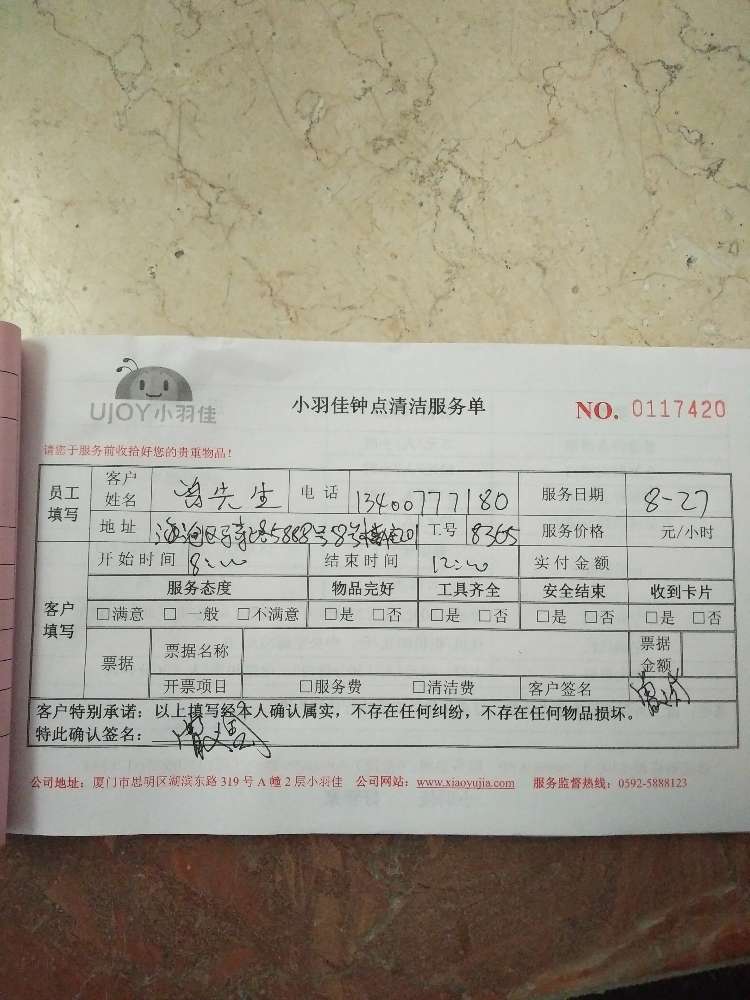 UJOY小羽佳
小羽佳钟点清洁服务单
NO. 0117420
请您于服务前收拾好您的贵重物品！
员工填写 客户姓名 曾先生 电话 13400777180 服务日期 8-27
地址 5888号8号楼201 工号 8365 服务价格 元/小时
客户填写 开始时间 8:00 结束时间 12:00 实付金额
服务态度 物品完好 工具齐全 安全结束 收到卡片
□满意 □一般 □不满意 □是 □否 □是 □否 □是 □否 □是 □否
票据 票据名称 票据金额
开票项目 □服务费 □清洁费 客户签名
客户特别承诺：以上填写经本人确认属实，不存在任何纠纷，不存在任何物品损坏。
特此确认签名：
公司地址：厦门市思明区湖滨东路 319 号 A 幢 2 层小羽佳 公司网站：www.xiaoyujia.com 服务监督热线：0592-5888123